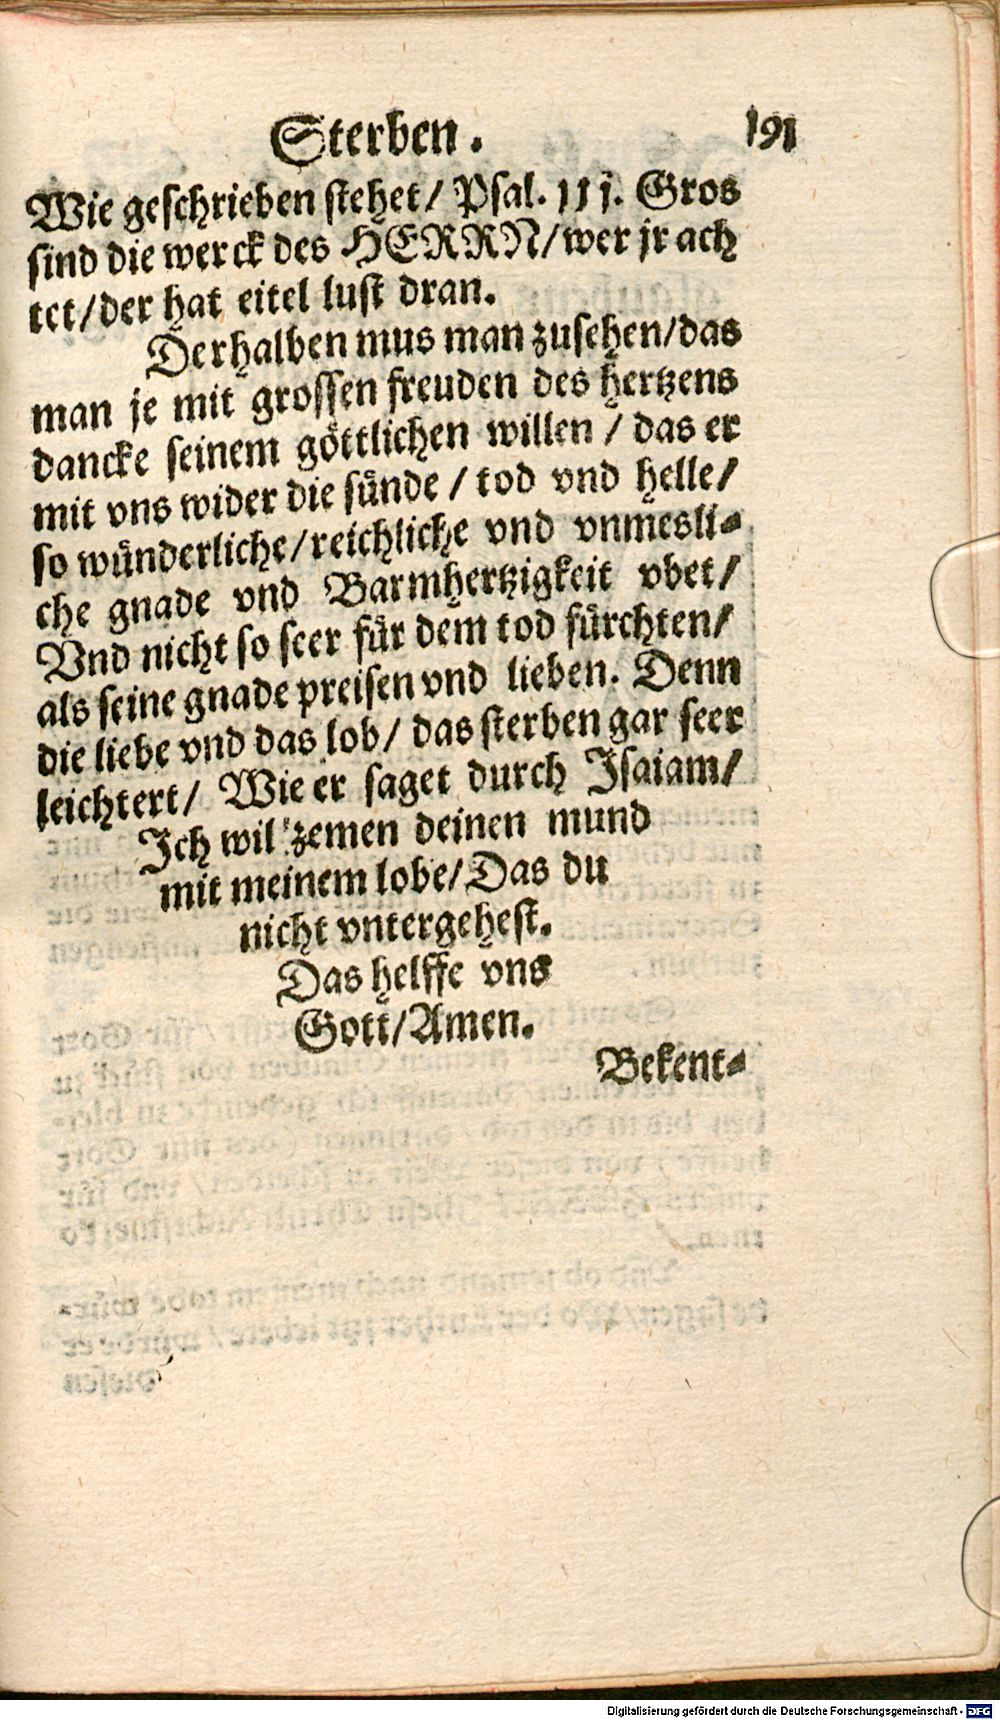 Sterben. 191
Wie geschrieben stehet/ Psal. 111. Gros
sind die werck des HERRN/wer jr ach
tet/der hat eitel lust dran.
Derhalben mus man zusehen/das
man je mit grossen freuden des hertzens
dancke seinem göttlichen willen / das er
mit vns wider die sünde / tod vnd helle/
so wünderliche/reichliche vnd vnmesli-
che gnade vnd Barmhertzigkeit vbet/
Vnd nicht so seer für dem tod fürchten/
als seine gnade preisen vnd lieben. Denn
die liebe vnd das lob/ das sterben gar seer
leichtert/ Wie er saget durch Isaiam/
Ich wil zemen deinen mund
mit meinem lobe/Das du
nicht vntergehest.
Das helffe vns
Gott/Amen.
Bekent-
Digitalisierung gefördert durch die Deutsche Forschungsgemeinschaft - DFG